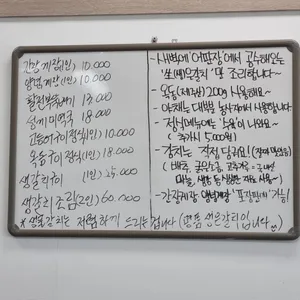 간장게장(1인) 10,000
양념게장(1인) 10,000
활전복뚝배기 13,000
성게미역국 18,000
고등어구이 정식(1인) 10,000
옥돔구이 정식(1인) 18,000
생갈치구이 (1인) 25,000
생갈치 조림(2인) 60,000
- 새벽에 '어판장'에서 공수해오는
'생(생)은갈치'만 조리합니다~
- 옥돔(제주산) 200g 사용합니다~
- 야채는 대부분 농사지어서 사용합니다
- 정식메뉴에는 나와요~
(추가시 5,000원)
- 김치는 직접 담궈요!
- 간장게장 양념게장 '포장판매' 가능!
* 생물갈치는 저렴하게 드리는겁니다 (명품 생은갈치입니다)